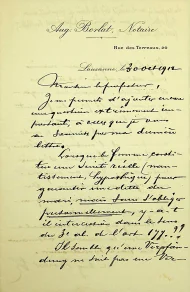 Aug. Berlat, Notaire
Rue des Terreaux, 20
Lausanne, le 30 oct 1912
Monsieur le professeur,
J'ai pensé d'ajouter encore
une question extrêmement im-
portante, à celles que je vous
ai soumises par ma dernière
lettre.
Lorsque la femme consti-
tue une sûreté réelle (nan-
tissement, hypothèque) pour
garantir une dette du
mari, mais sans s'obliger
personnellement, y a-t-
il intercession dans le sens
du 3e al. de l'art 177.??
Il semble qu'une Verpfän-
dung ne soit pas une